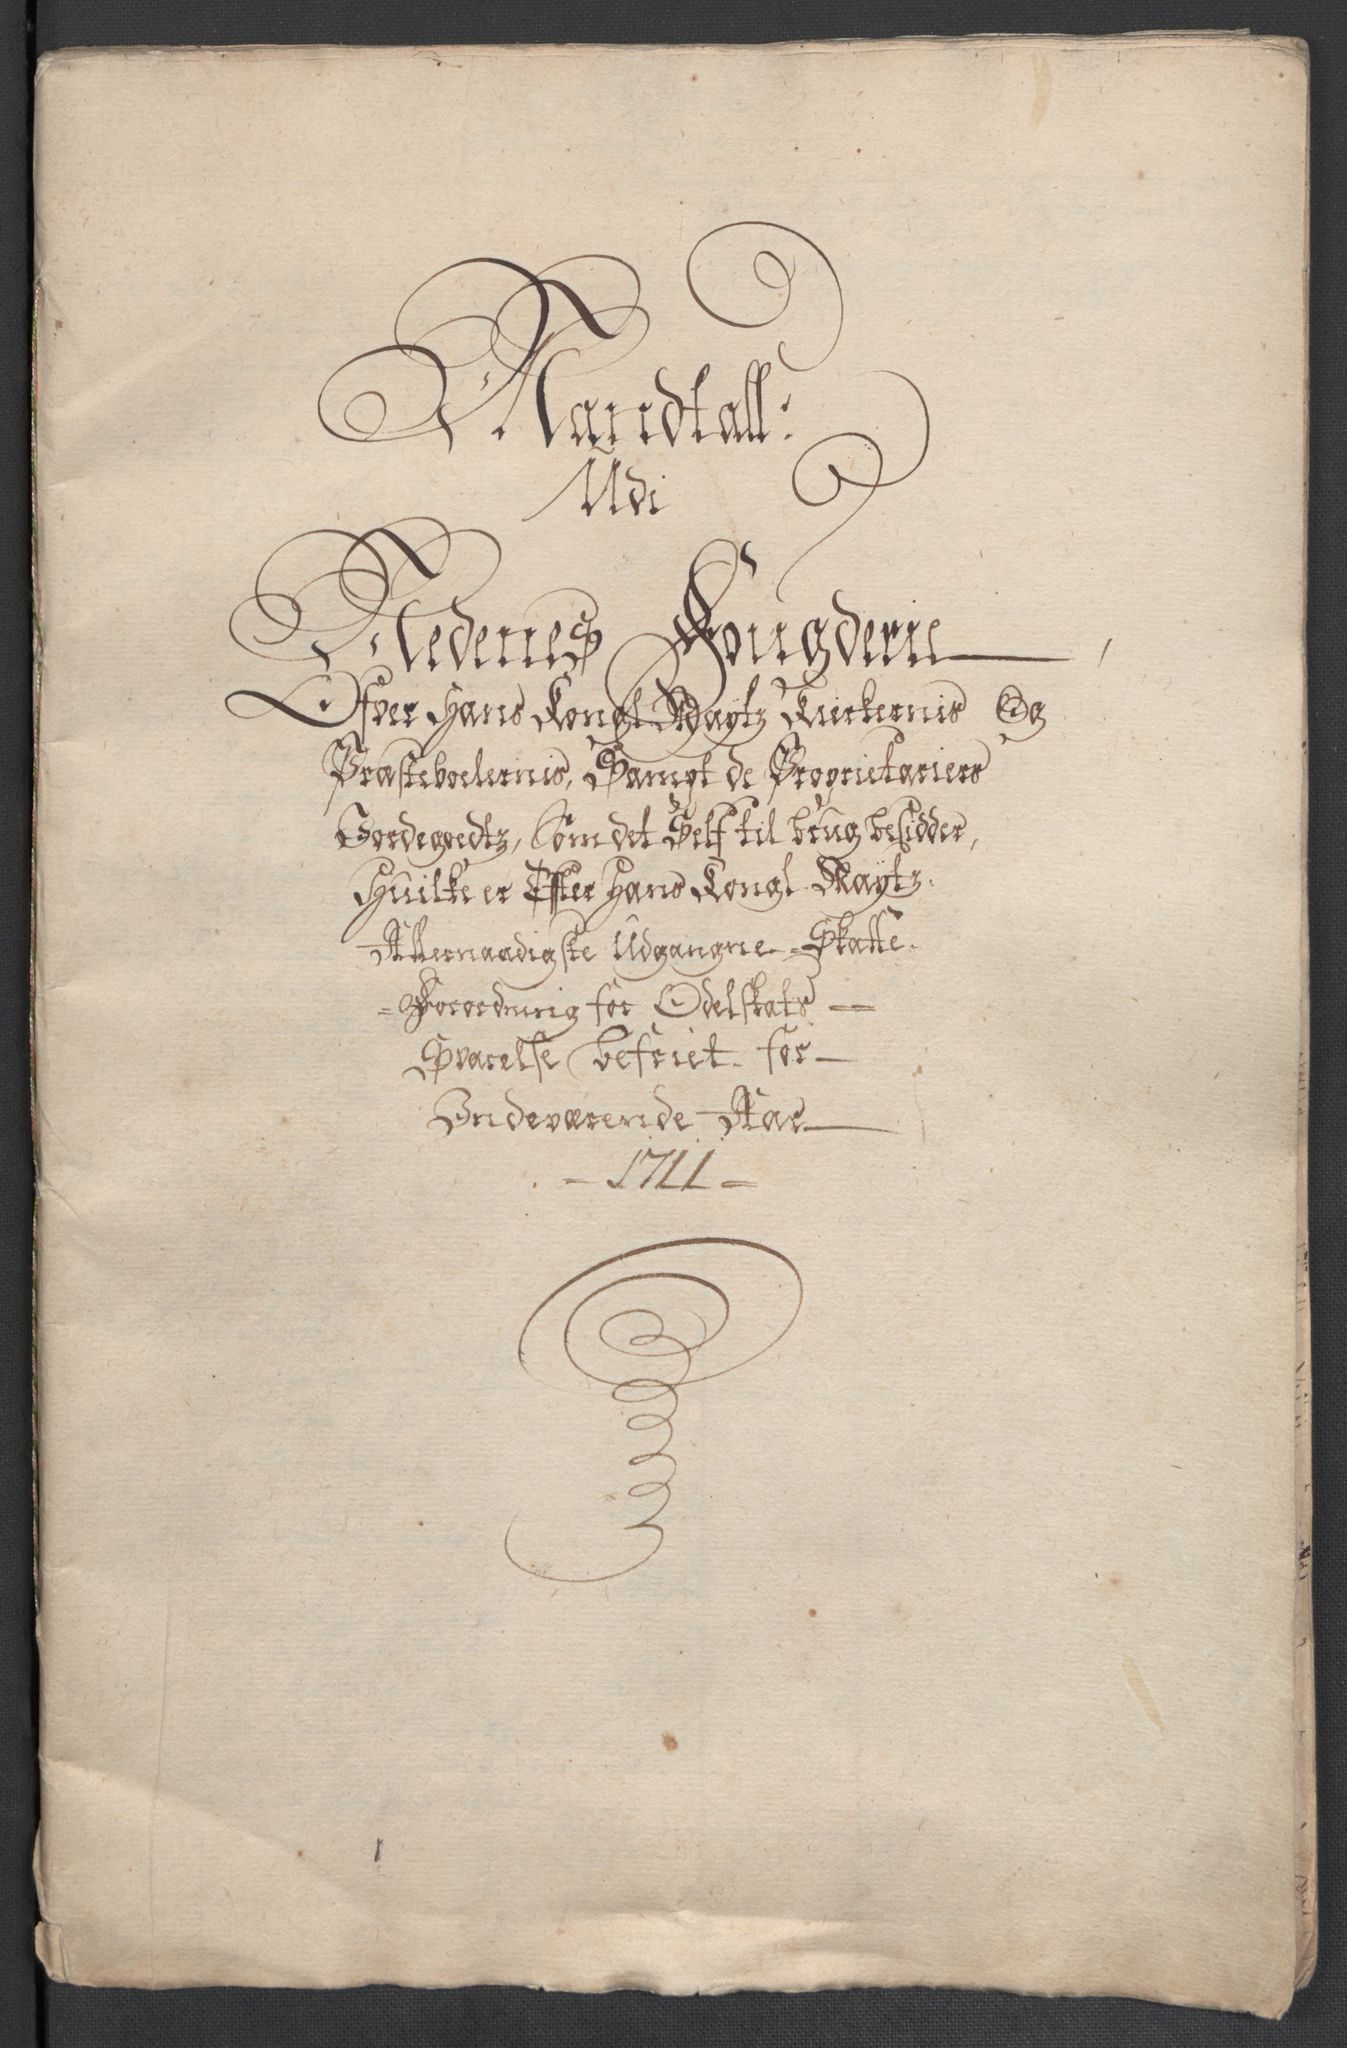 Mandtall:
Udi
Nedenes Fougderie
Ofver Hans Kongl Maytz Kirkernis Og
Præsteboelernis, Sampt de Proprietariers
Jordegoedtz, Som det Self til brug besidder,
Huilke er Efter Hans Kongl. Maytz.
Allernaadigste Udgangne Skatte-
-Forordning for Odelskats
Svarelse befriet. for
Indeværende Aar
- 1711 -